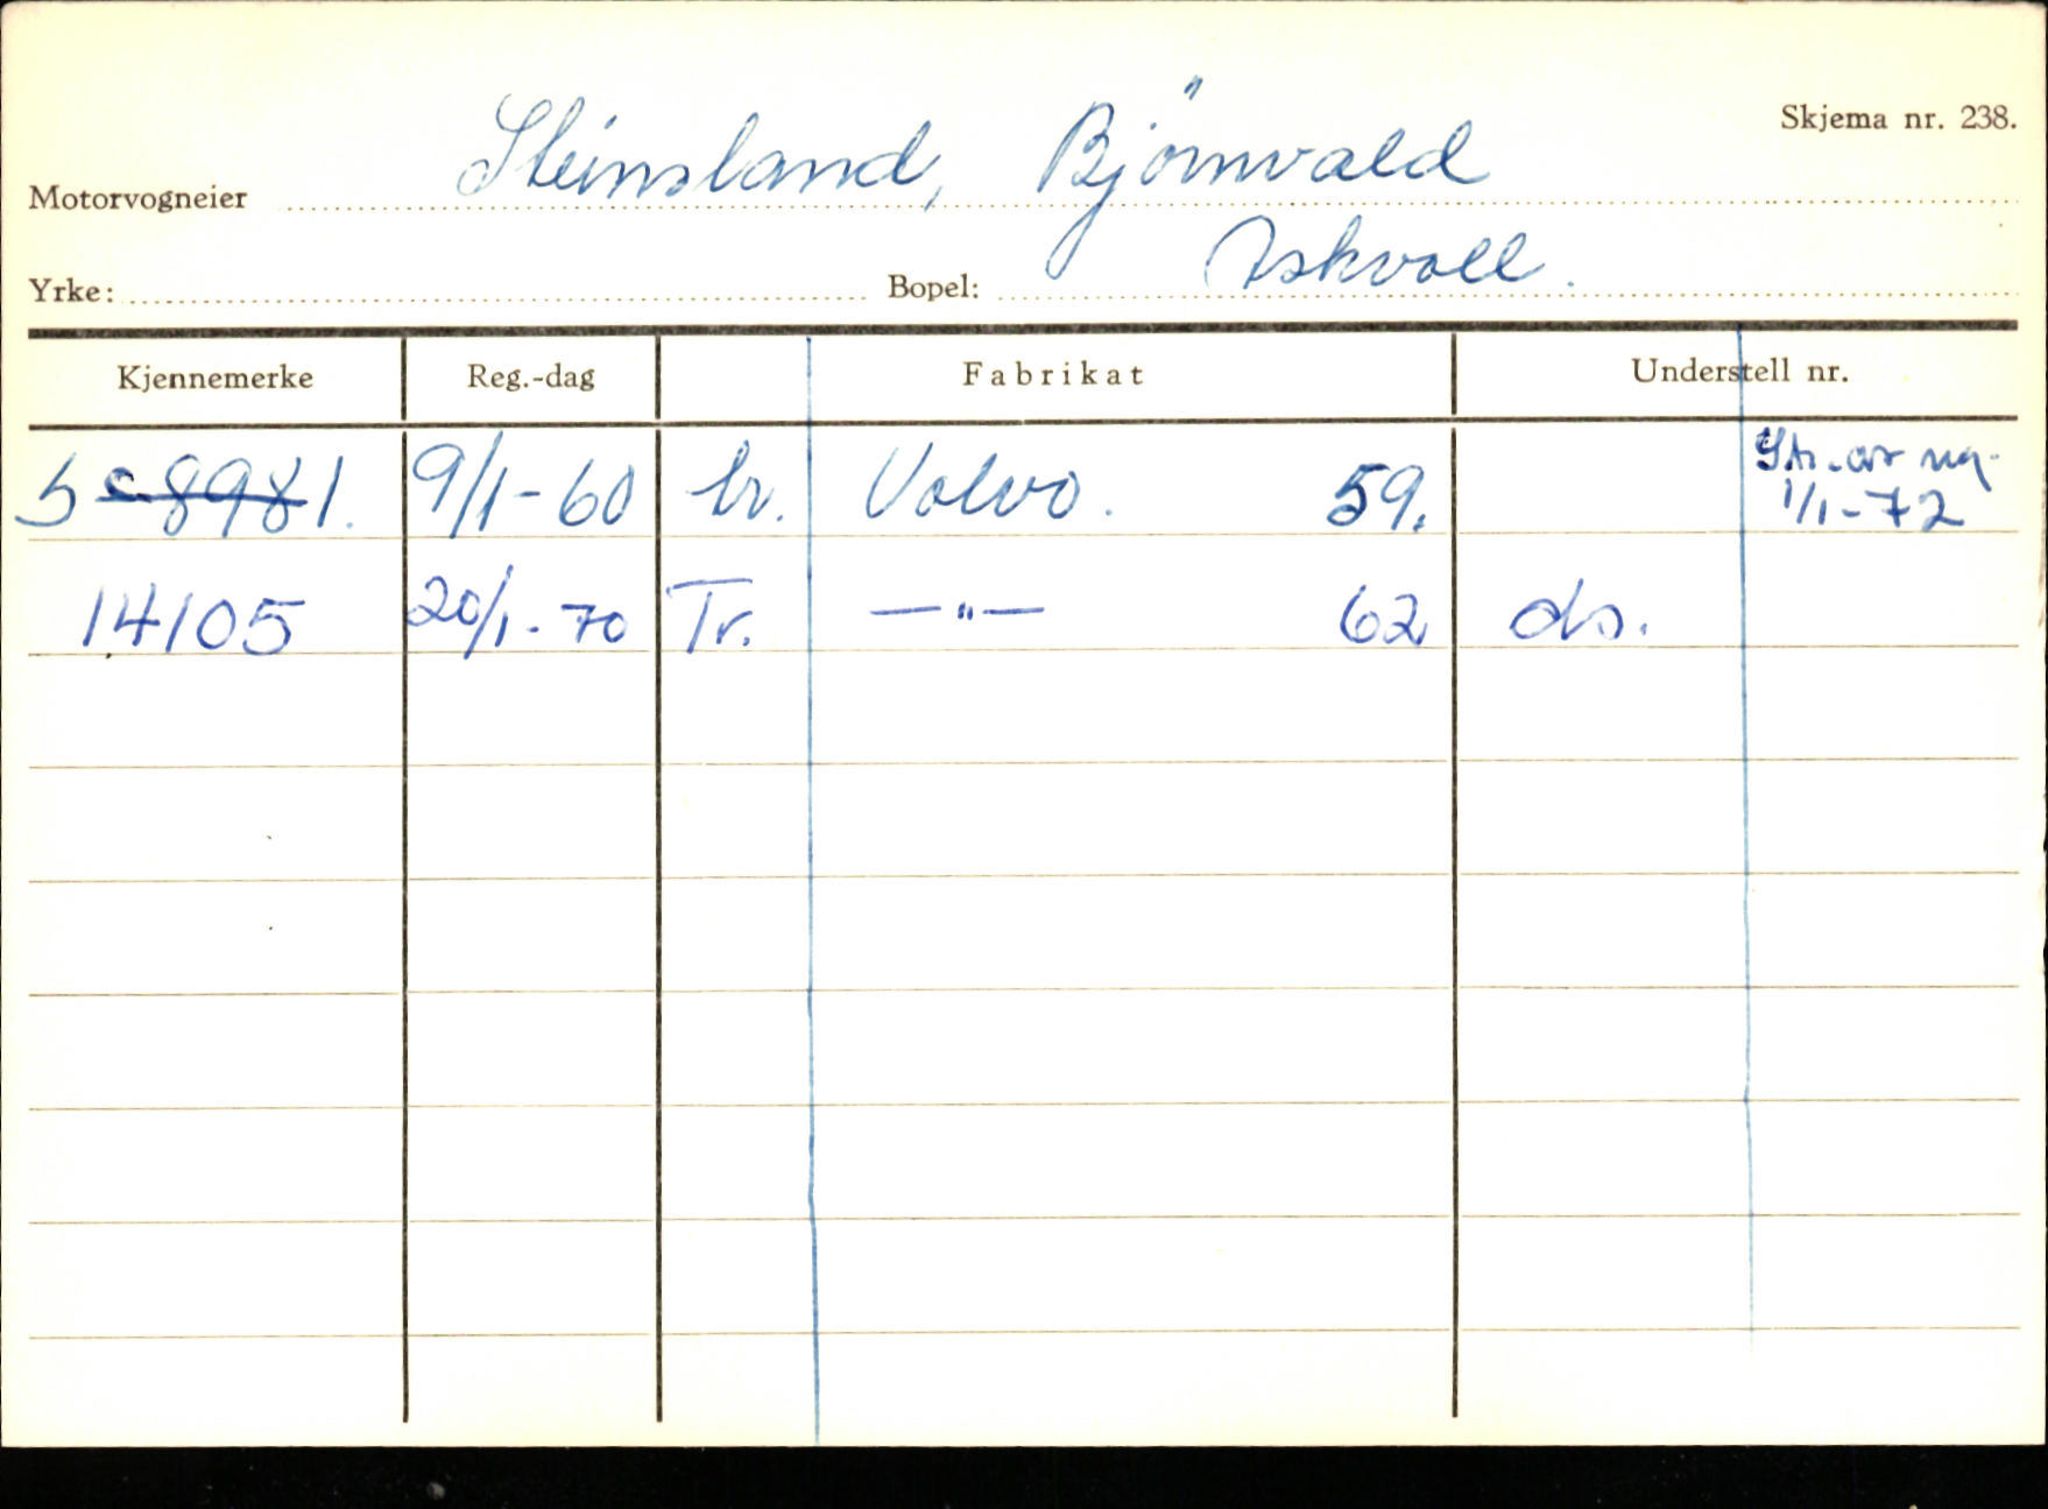 Skjema nr. 238.
Motorvogneier Steinsland, Björnvald
Yrke: Bopel: Askvoll.
Kjennemerke Reg.-dag Fabrikat Understell nr.
S 8981. 9/1-60 Volvo. 59. Str. av reg.
1/1-72
14105 20/1-70 Tr. —"— 62 ds.